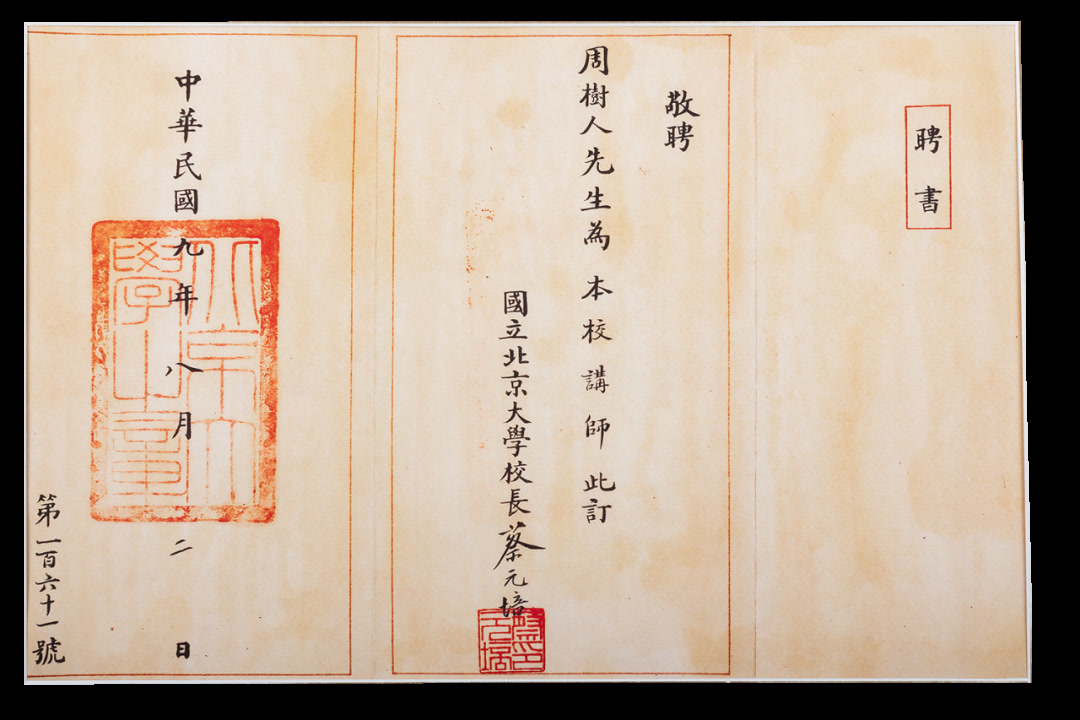 聘書
敬聘
周樹人先生為本校講師此訂
國立北京大學校長蔡元培
蔡元培印
中華民國九年八月二日
北京大學之章
第一百六十一號